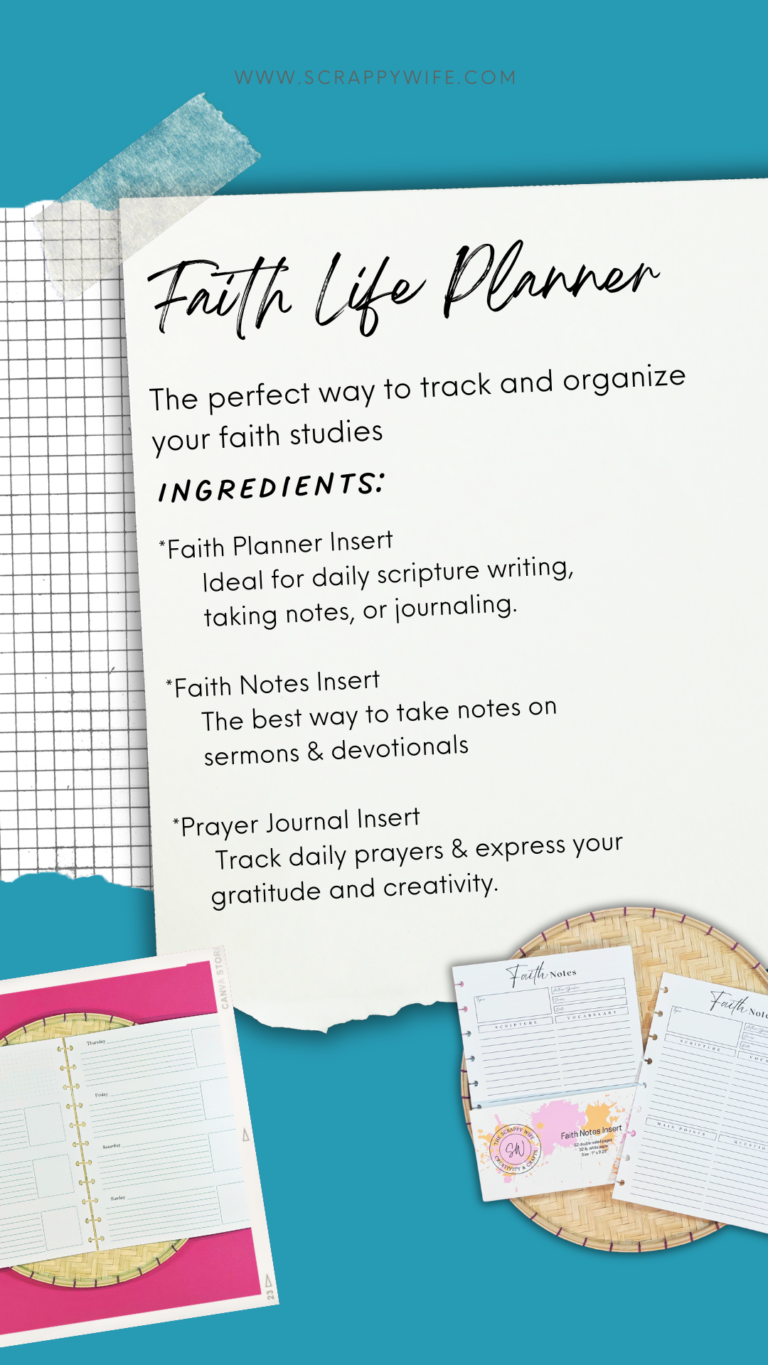 WWW.SCRAPPYWIFE.COM
Faith Life Planner
The perfect way to track and organize
your faith studies
INGREDIENTS:
*Faith Planner Insert
Ideal for daily scripture writing,
taking notes, or journaling.
*Faith Notes Insert
The best way to take notes on
sermons & devotionals
*Prayer Journal Insert
Track daily prayers & express your
gratitude and creativity.
CANVA STOR
Thursday
Friday
Saturday
Sunday
23
Faith Notes
SCRIPTURE
VOCABULARY
Faith Notes Insert
THE SCRAPPY WIFE
SW
CREATIVITY & CRAFTS
Faith Note
SCRIPTURE
MAIN POINTS